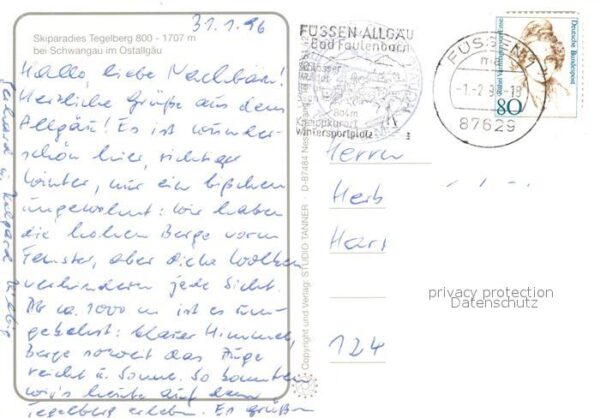 31.1.96
Skiparadies Tegelberg 800 - 1707 m
bei Schwangau im Ostallgäu
Hallo, liebe Nachbarn!
Herzliche Grüße aus dem
Allgäu! Es ist wunder-
schön hier, richtiger
Winter, nur ein bißchen
ungewohnt: wir haben
die hohen Berge vorm
Fenster, aber dicke Wolken
verhindern jede Sicht.
Ab ca. 1000 m ist es um-
gekehrt: blauer Himmel,
Berge soweit das Auge
reicht u. Sonne. So konnten
wir's heute auf dem
Tegelberg erleben. Es grüßen
Gerhard u. Hilgard
Copyright und Verlag: STUDIO TANNER · D-87484 Nesselwang
FÜSSEN ALLGÄU
Bad Faulenbach
804m
Kneippkurort
Wintersportplatz
FÜSSEN 1
-1.-2.96-18
87629
Deutsche Bundespost
80
Herrn
Herb
Hart
124
privacy protection
Datenschutz